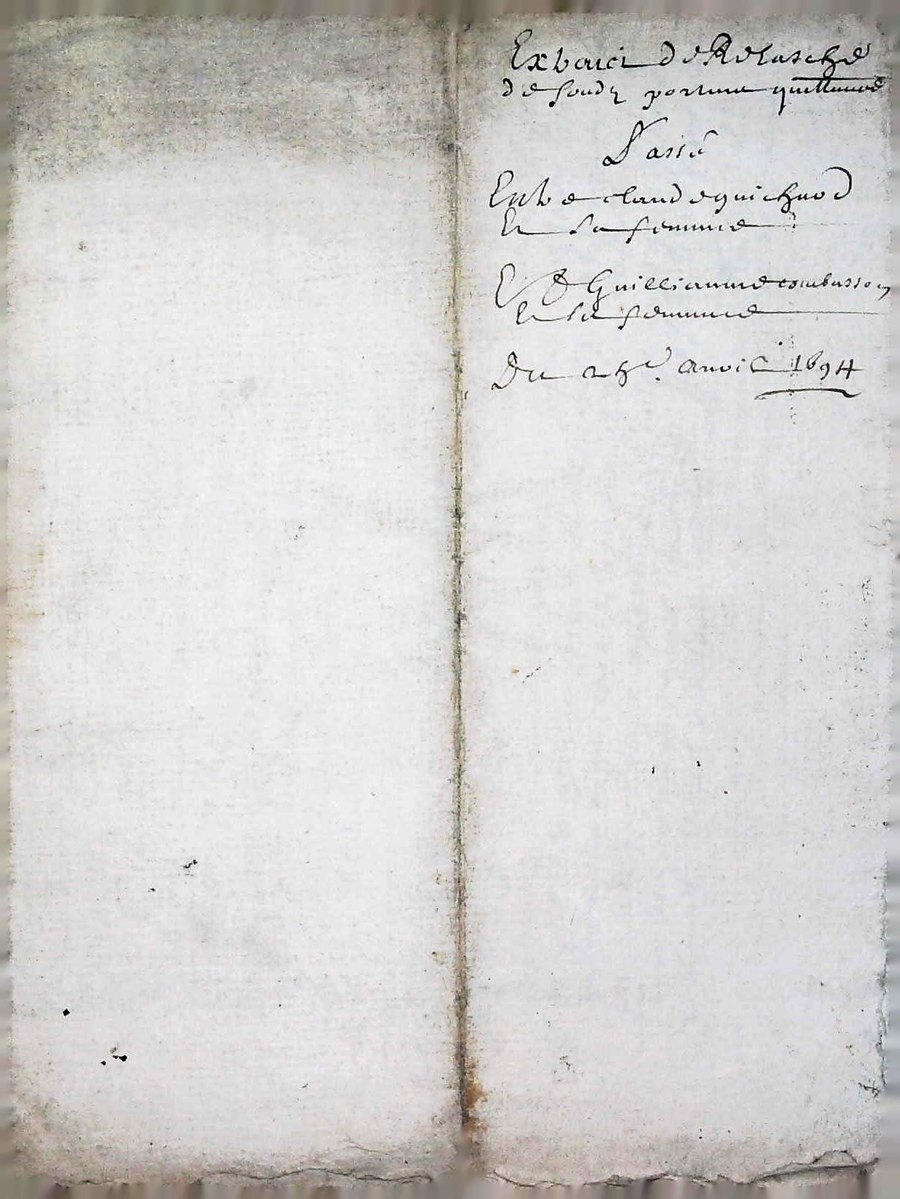 Extraict de Relasche
de fondz portant quittance
Passé
Entre claude guichard
Et sa femme
Et Guilliaume combasson
Et sa femme
Du 25e. avril 1694